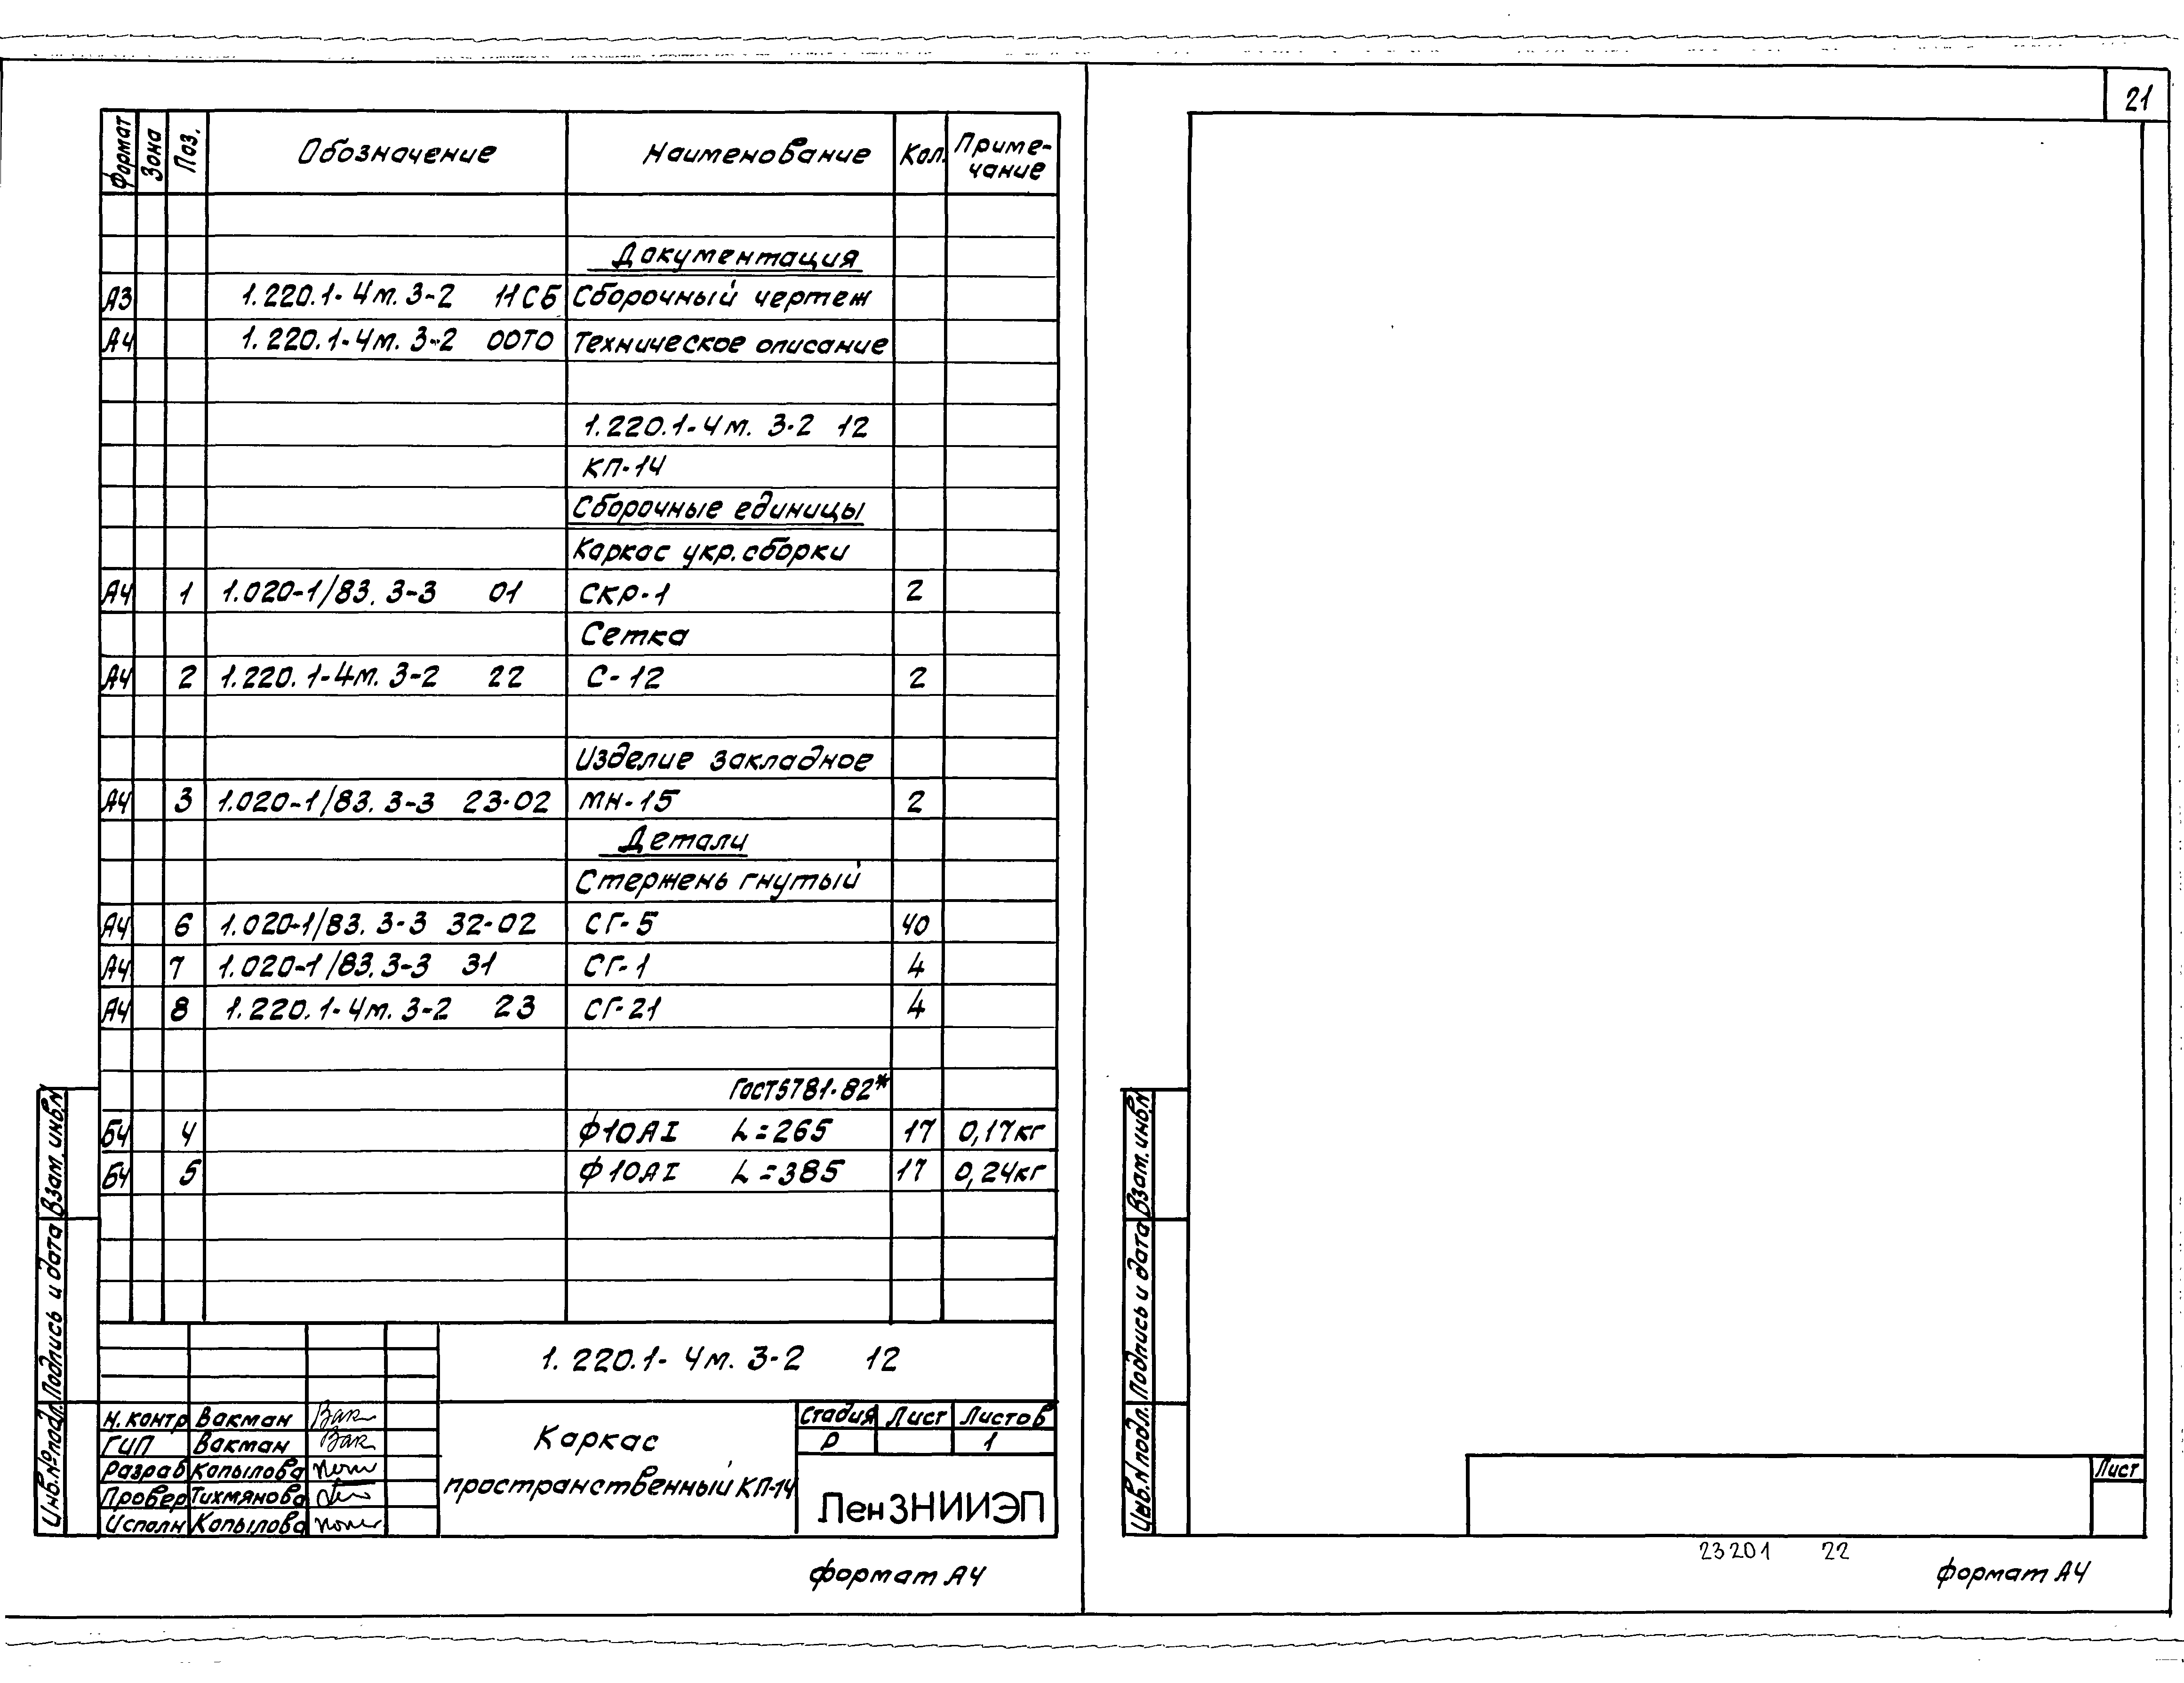 Формат Зона Поз. Обозначение Наименование Кол. Приме-
чание
Документация
А3 1.220.1-4м. 3-2 11СБ Сборочный чертеж
А4 1.220.1-4м. 3-2 00ТО Техническое описание
1.220.1-4м. 3-2 12
КП-14
Сборочные единицы
Каркас укр. сборки
А4 1 1.020-1/83. 3-3 01 СКР-1 2
Сетка
А4 2 1.220.1-4м. 3-2 22 С-12 2
Изделие закладное
А4 3 1.020-1/83. 3-3 23-02 МН-15 2
Детали
Стержень гнутый
А4 6 1.020-1/83. 3-3 32-02 СГ-5 40
А4 7 1.020-1/83. 3-3 31 СГ-1 4
А4 8 1.220.1-4м. 3-2 23 СГ-21 4
ГОСТ5781-82*
БЧ 4 Ф10АI L=265 17 0,17кг
БЧ 5 Ф10АI L=385 17 0,24кг
Взам. инв.N
Подпись и дата
Инв.№подл.
1.220.1-4м. 3-2 12
Н.контр Вакман Вак
ГИП Вакман Вак
Разраб Копылова
Провер Тихмянова
Исполн Копылова
Каркас
пространственный КП-14
Стадия Лист Листов
Р 1
ЛенЗНИИЭП
формат А4
21
Взам. инв.N
Подпись и дата
Инв.N подл.
Лист
23201 22
формат А4